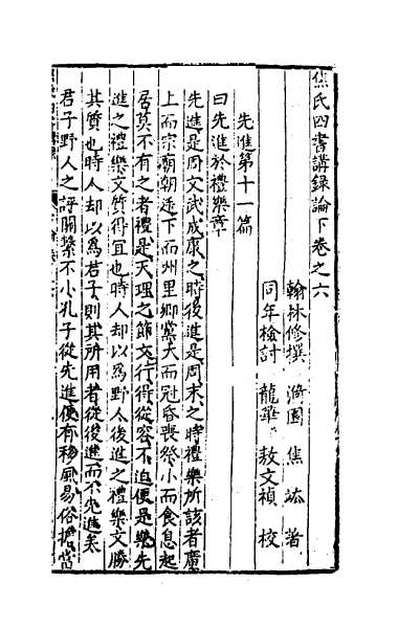 焦氏四書講録論下卷之六
翰林修撰 漪園 焦竑 著
同年檢討 龍華 敖文禎 校
先進第十一篇
曰先進於禮樂章
先進是周文武成康之時後進是周末之時禮樂所該者廣
上而宗朝朝廷下而州里鄉黨大而冠昏喪祭小而食息起
居莫不有之者禮是天理之節文行得從容不迫便是樂先
進之禮樂文質得宜也時人却以為野人後進之禮樂文勝
其質也時人却以為君子則其所用者從後進而不先進矣
君子野人之評關繫不小孔子從先進便有移風易俗擔當